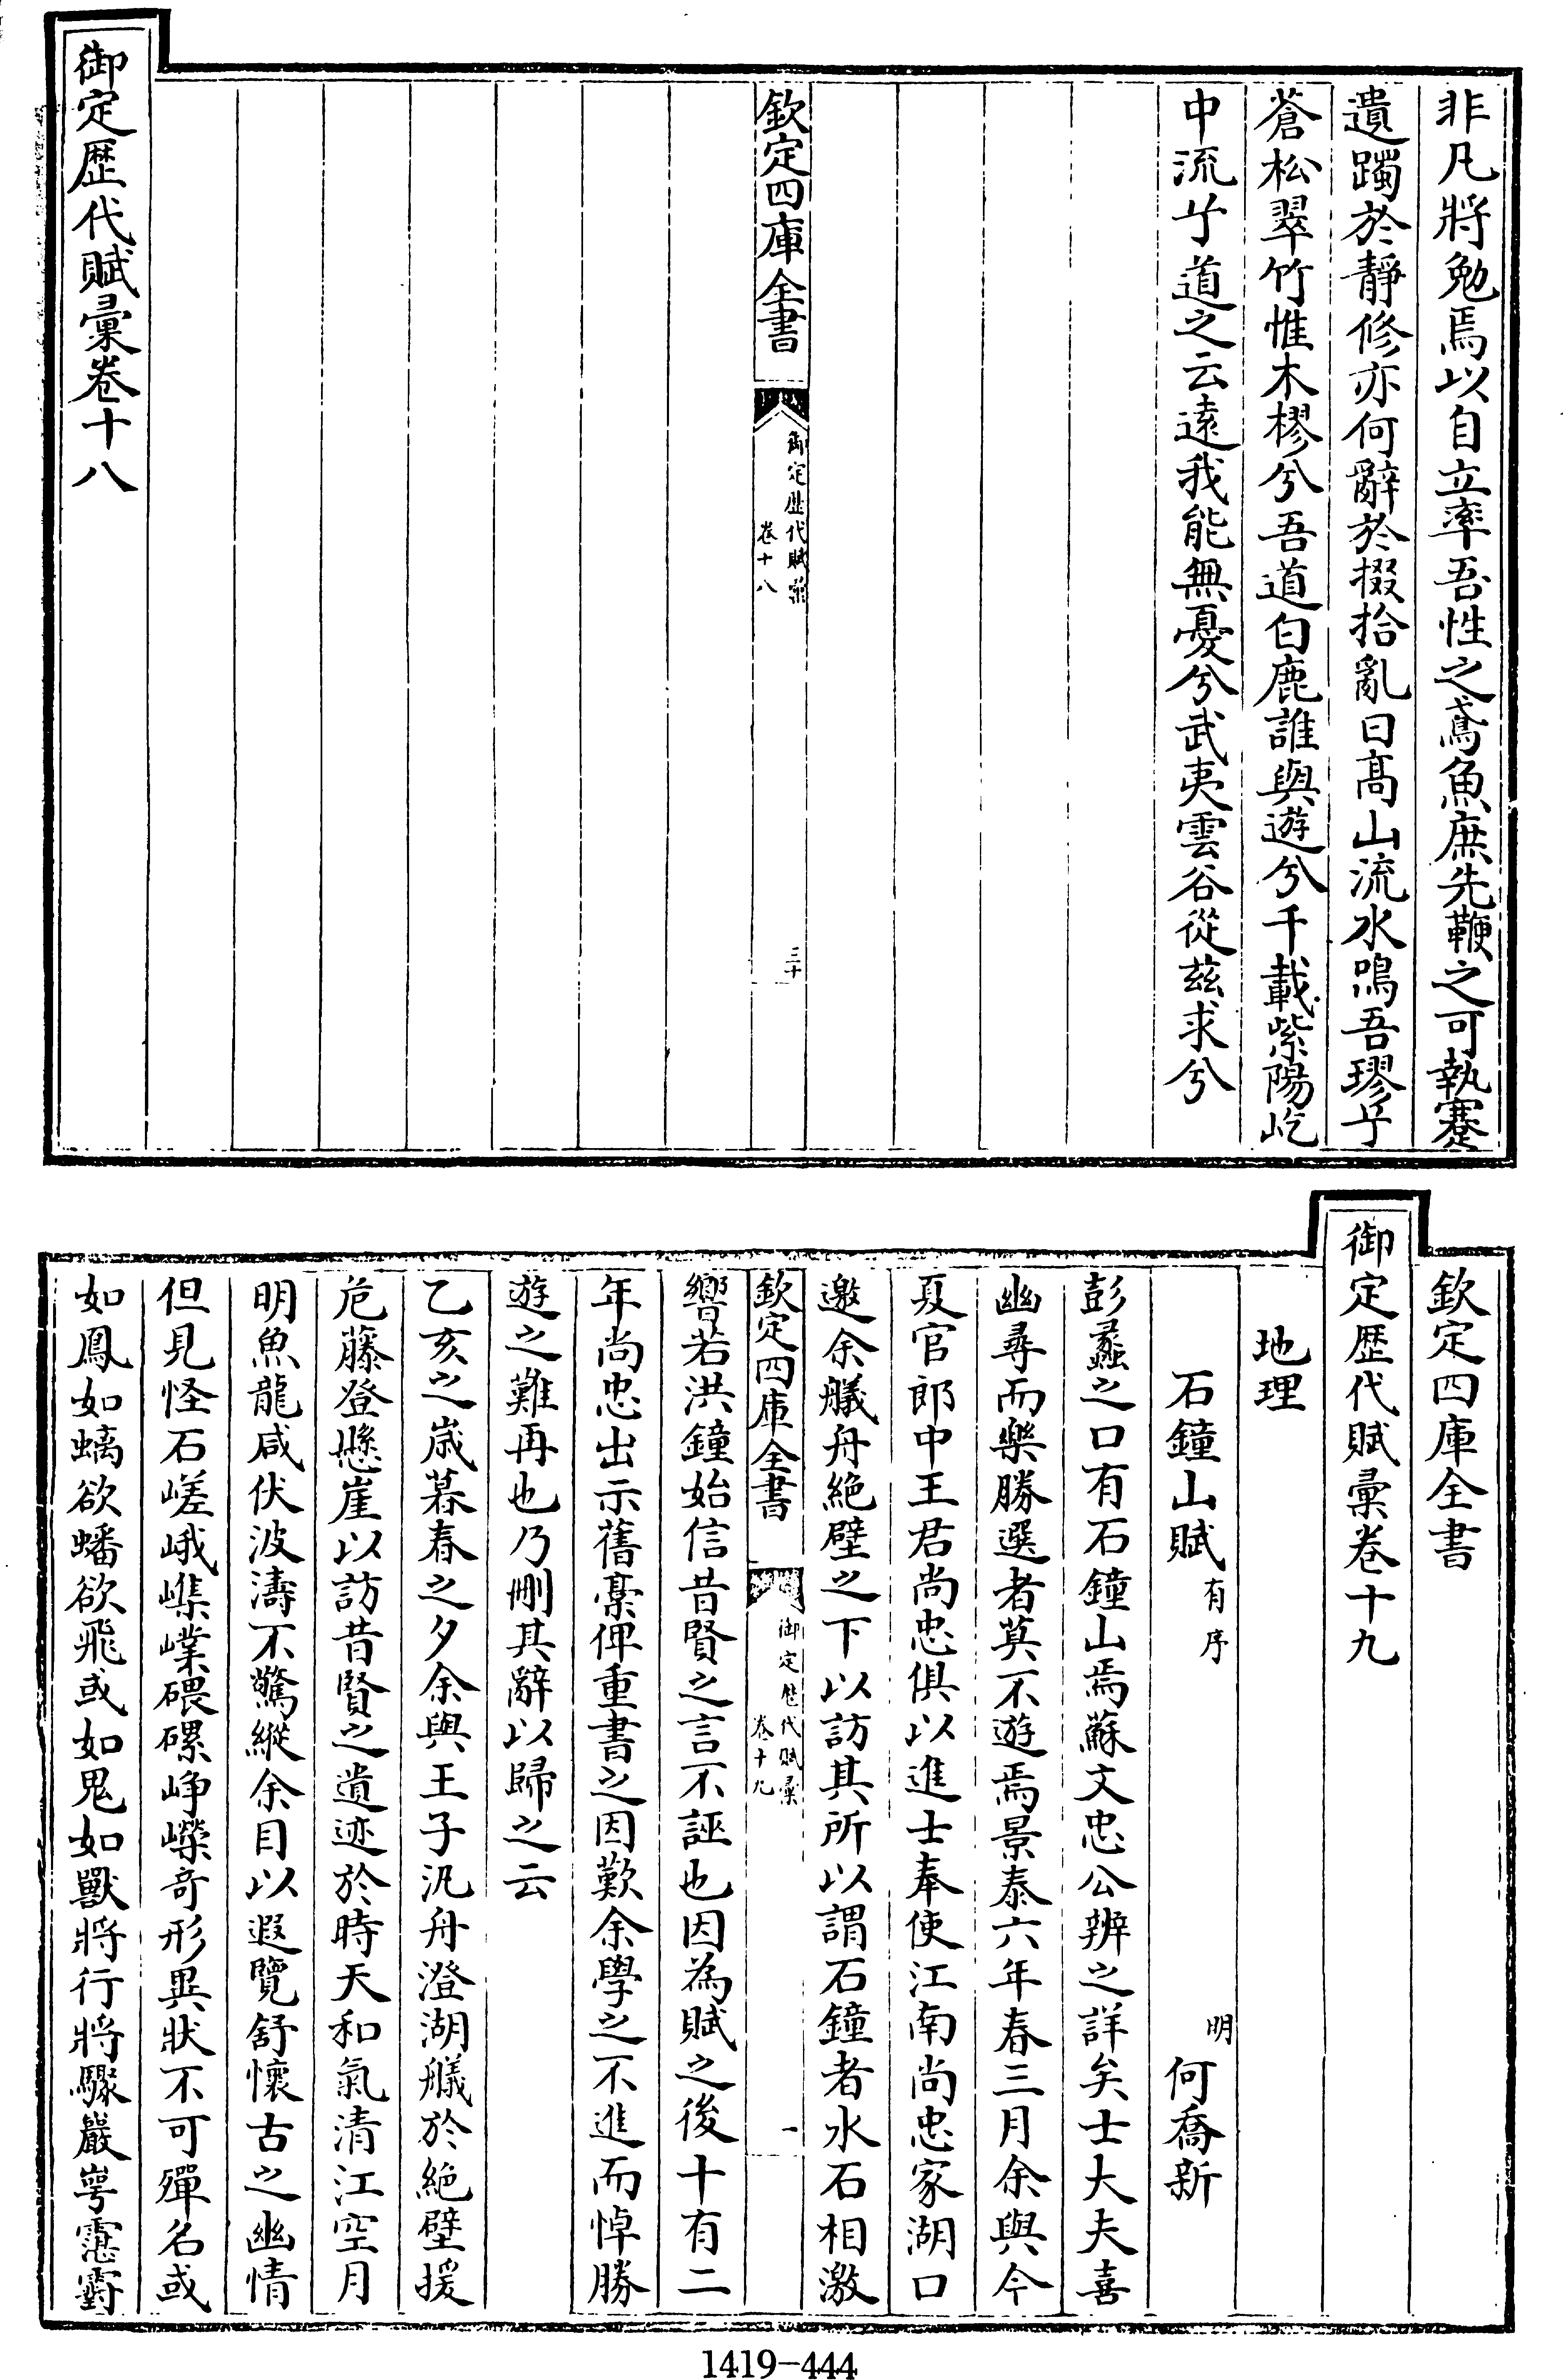 非凡將勉焉以自立率吾性之鳶魚庶先鞭之可執蹇
遺躅於靜修亦何辭於掇拾亂曰髙山流水鳴吾璆乎
蒼松翠竹惟木樛兮吾道白鹿誰與遊兮千載紫陽屹
中流乎道之云逺我能無憂兮武夷雲谷從茲求兮
欽定四庫全書
御定歴代賦彚
卷十八
三十
御定歴代賦彙卷十八
欽定四庫全書
御定歴代賦彙卷十九
地理
石鐘山賦有序
明
何喬新
彭蠡之口有石鐘山焉蘇文忠公辨之詳矣士大夫喜
幽尋而樂勝選者莫不遊焉景泰六年春三月余與今
夏官郎中王君尚忠俱以進士奉使江南尚忠家湖口
邀余艤舟絶壁之下以訪其所以謂石鐘者水石相激
欽定四庫全書
御定歴代賦彙
卷十九
一
響若洪鐘始信昔賢之言不誣也因為賦之後十有二
年尚忠出示舊藁俾重書之因歎余學之不進而悼勝
遊之難再也乃刪其辭以歸之云
乙亥之歳暮春之夕余與王子汎舟澄湖艤於絶壁援
危藤登懸崖以訪昔賢之遺迹於時天和氣清江空月
明魚龍咸伏波濤不驚縱余目以遐覽舒懷古之幽情
但見怪石嵯峨嶫㠎碨磥崢嶸奇形異狀不可殫名或
如鳳如螭欲蟠欲飛或如鬼如獸將行將驟巖
1419-444